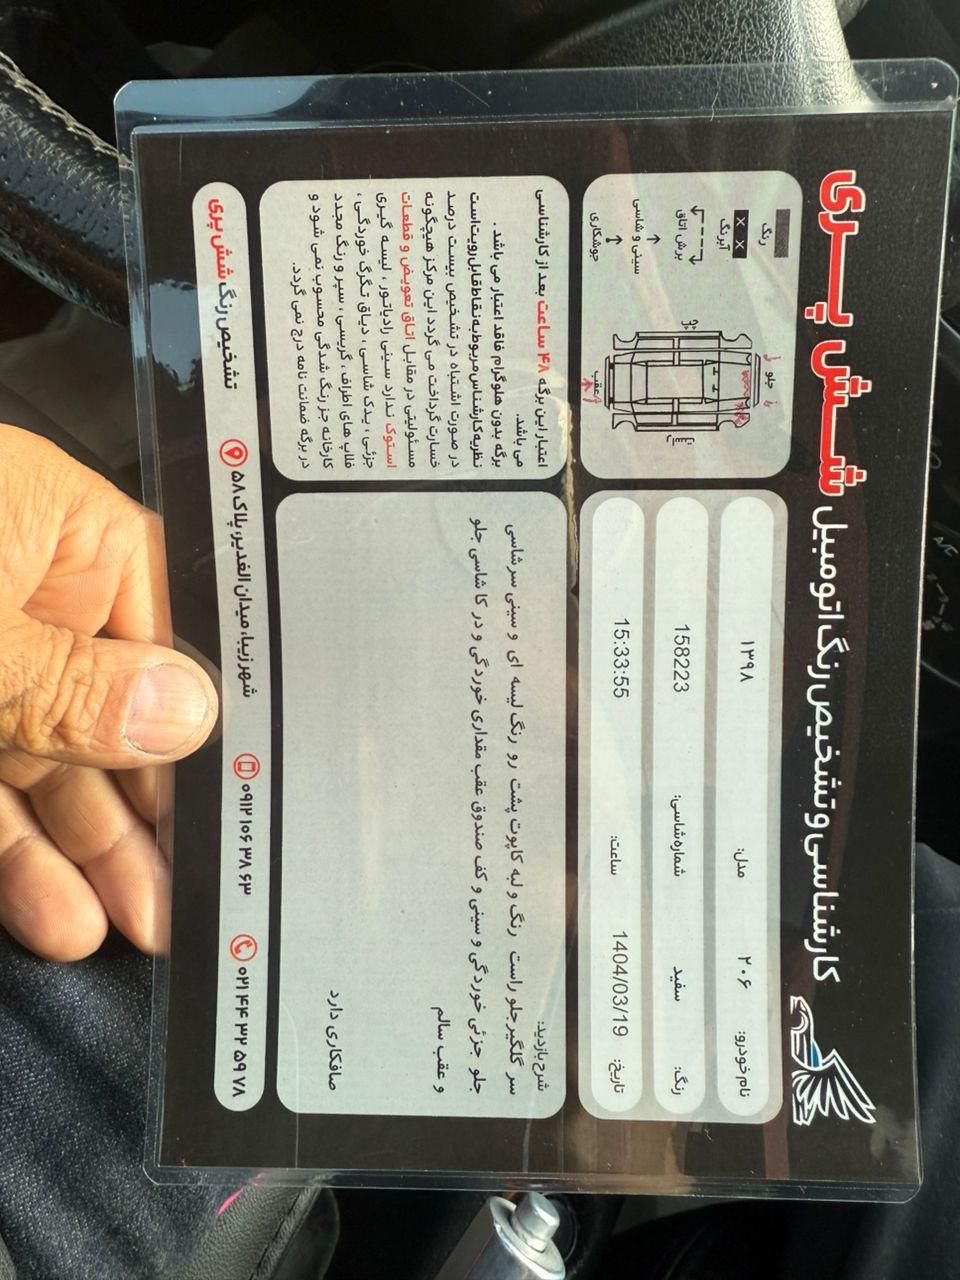 کارشناسی و تشخیص رنگ اتومبیل شش پری
نام خودرو: ۲۰۶ مدل: ۱۳۹۸
رنگ: سفید شماره شاسی: 158223
تاریخ: 1404/03/19 ساعت: 15:33:55
رنگ
آبرنگ
برش اتاق
سینی و شاسی
جوشکاری
جلو
عقب
شرح بازدید:
سر گلگیر جلو راست رنگ و لبه کاپوت پشت رو رنگ لیسه ای و سینی سر شاسی
جلو جزئی خوردگی و سینی و کف صندوق عقب مقداری خوردگی و در کل شاسی جلو
و عقب سالم
صافکاری دارد
اعتبار این برگه ۴۸ ساعت بعد از کارشناسی
می باشد.
برگه بدون هلوگرام فاقد اعتبار می باشد.
نظریه کارشناس مربوط به نقاط قابل رویت است
در صورت اشتباه در تشخیص بیست درصد
خسارت گرداخت می گردد این مرکز هیچگونه
مسئولیتی در مقابل اتاق تعویض و قطعات
استوک ندارد سینی رادیاتور، لیسه گیری
جزئی، یدک شاسی، دیاق تگرگ خوردگی،
قلاپ های اطراف، گریسی، سپر و رنگ مجدد
کارخانه جز رنگ شدگی محسوب نمی شود و
در برگه ضمانت نامه درج نمی گردد.
۰۲۱ ۴۴ ۳۲ ۵۹ ۷۸ ۰۹۱۲ ۱۰۶ ۳۸ ۶۳ شهرزیبا، میدان الغدیر، پلاک ۵۸ تشخیص رنگ شش پری